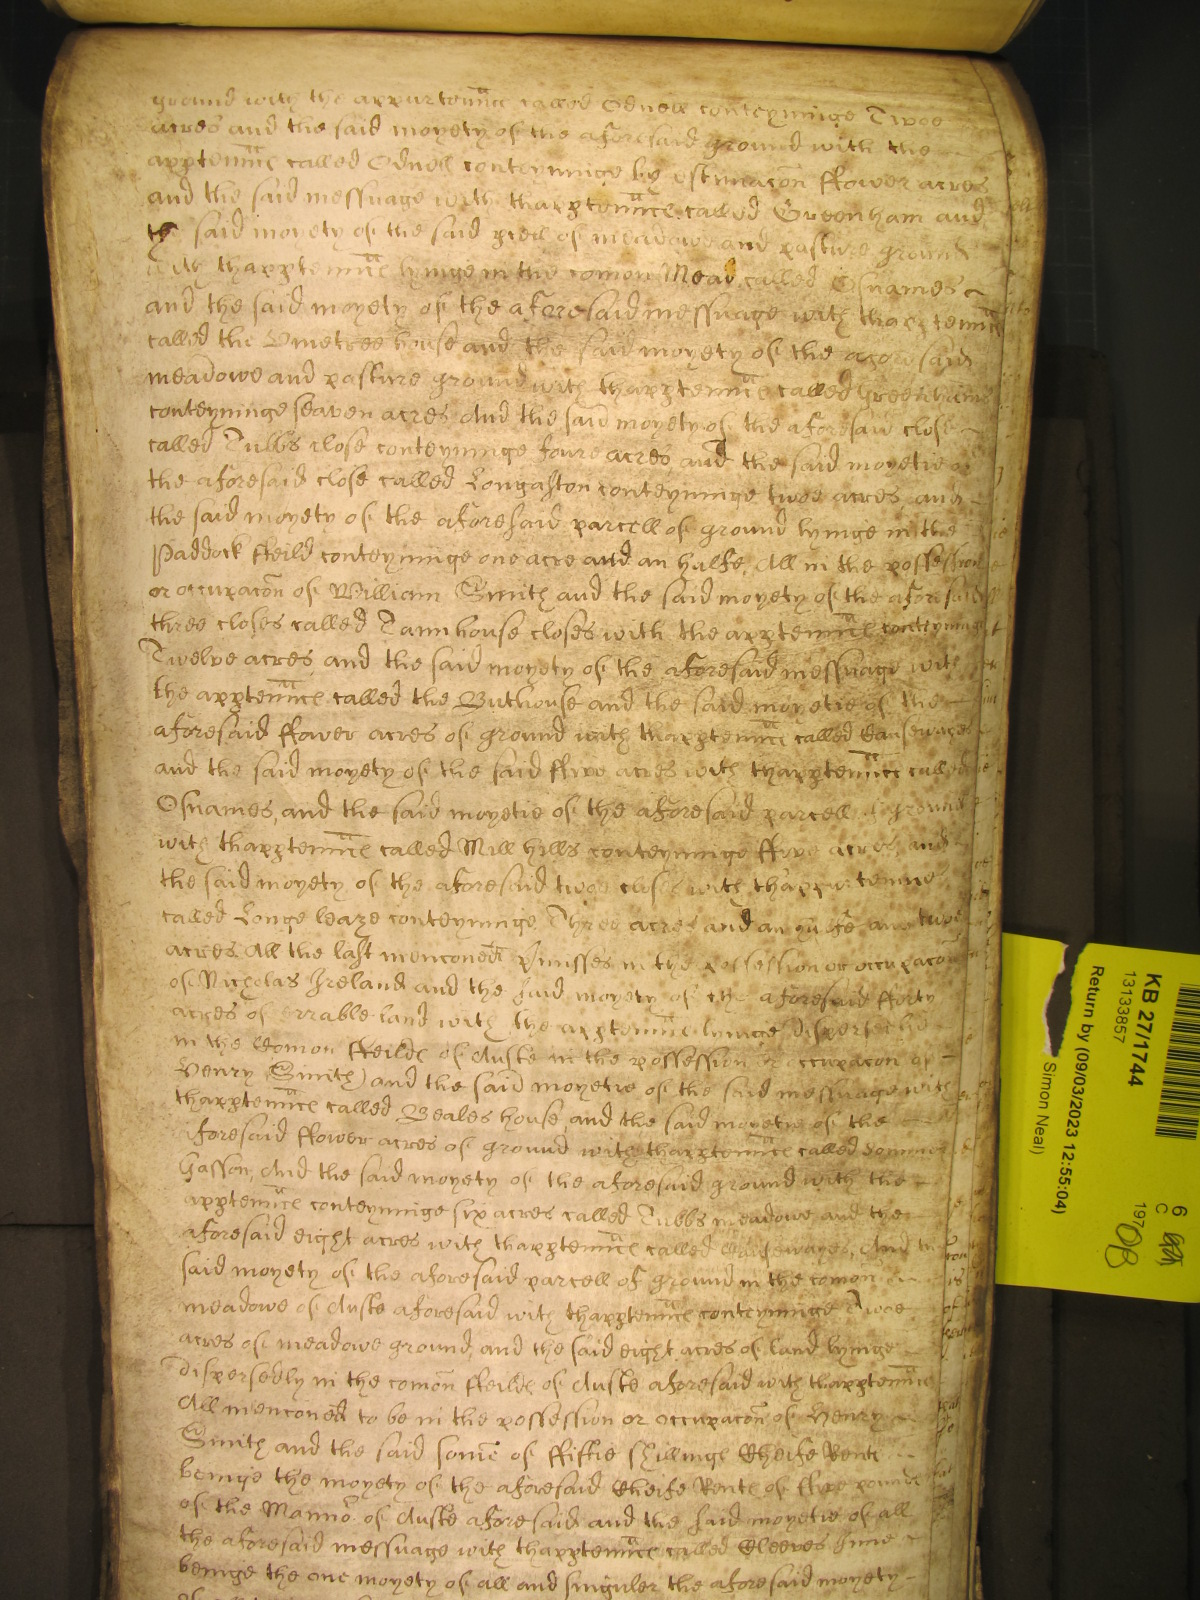 ground with the appurtennce called Odnell conteyninge Twoe
acres and the said moyety of the aforesaid ground with the
apptennce called Odnell conteyninge by estimacon ffower acres
and the said messuage with thapptennce called Greenham and
the said moyety of the said peell of meadowe and pasture ground
with thapptennce lyinge in the comon Mead called Osnames
and the said moyety of the aforesaid messuage with thapptennce
called the Vinetree house and the said moyety of the aforesaid
meadowe and pasture ground with thapptennce called Greenhams
conteyninge seaven acres And the said moyety of the aforesaid close
called Tubbs close conteyninge foure acres and the said moyetie of
the aforesaid close called Longaston conteyninge twoe acres and
the said moyety of the aforesaid parcell of ground lyinge in the
Paddock ffeild conteyninge one acre and an halfe, All in the possession
or occupacon of William Smith and the said moyety of the aforesaid
three closes called Tannhouse closes with the apptennce conteyninge
Twelve acres and the said moyety of the aforesaid messuage with
the apptennce called the Buthouse and the said moyetie of the
aforesaid ffower acres of ground with thapptennce called Causewayes
and the said moyety of the said ffive acres with thapptennce called
Osnames, and the said moyetie of the aforesaid parcell of ground
with thapptennce called Mill hills conteyninge ffive acres and
the said moyety of the aforesaid twoe closes with thappurtennce
called Longe leaze conteyninge Three acres and an halfe and twoe
acres All the last menconed pmisses in the possession or occupacon
of Nicholas Ireland and the said moyety of the aforesaid fforty
acres of errable land with the apptennce lyinge dispersedly
in the Comon ffeilds of Auste in the possession or occupacon of
Henry Smith) and the said moyetie of the said messuage with
thapptennce called Beales house and the said moyetie of the
aforesaid ffower acres of ground with thapptennce called Sommer
Gasson, And the said moyety of the aforesaid ground with the
apptennce conteyninge six acres called Tubbs meadowe and the
aforesaid eight acres with thapptennce called Causewayes, And the
said moyety of the aforesaid parcell of ground in the comon
meadowe of Auste aforesaid with thapptennce conteyninge Twoe
acres of meadowe ground, and the said eight acres of land lyinge
dispersedly in the comon ffeilds of Auste aforesaid with thapptennce
All menconed to be in the possession or occupacon of Henry
Smith and the said some of ffiftie shillings Cheife Rente
beinge the moyety of the aforesaid Cheife Rente of ffive pounds
of the Manno of Auste aforesaid and the said moyetie of all
the aforesaid messuage with thapptennce called Cleeves Inne
beinge the one moyety of all and singuler the aforesaid moyety
KB 27/1744
13133857
Return by (09/03/2023 12:55:04)
Simon Neal)
6
C
197